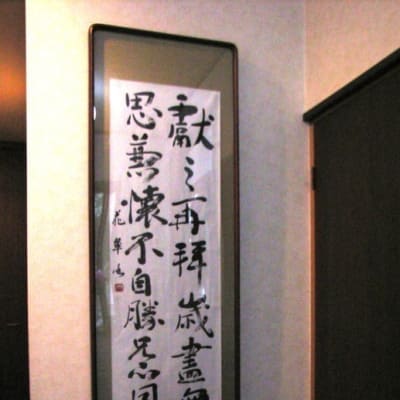 獻之再拜歲盡無
思兼懷不自勝兄